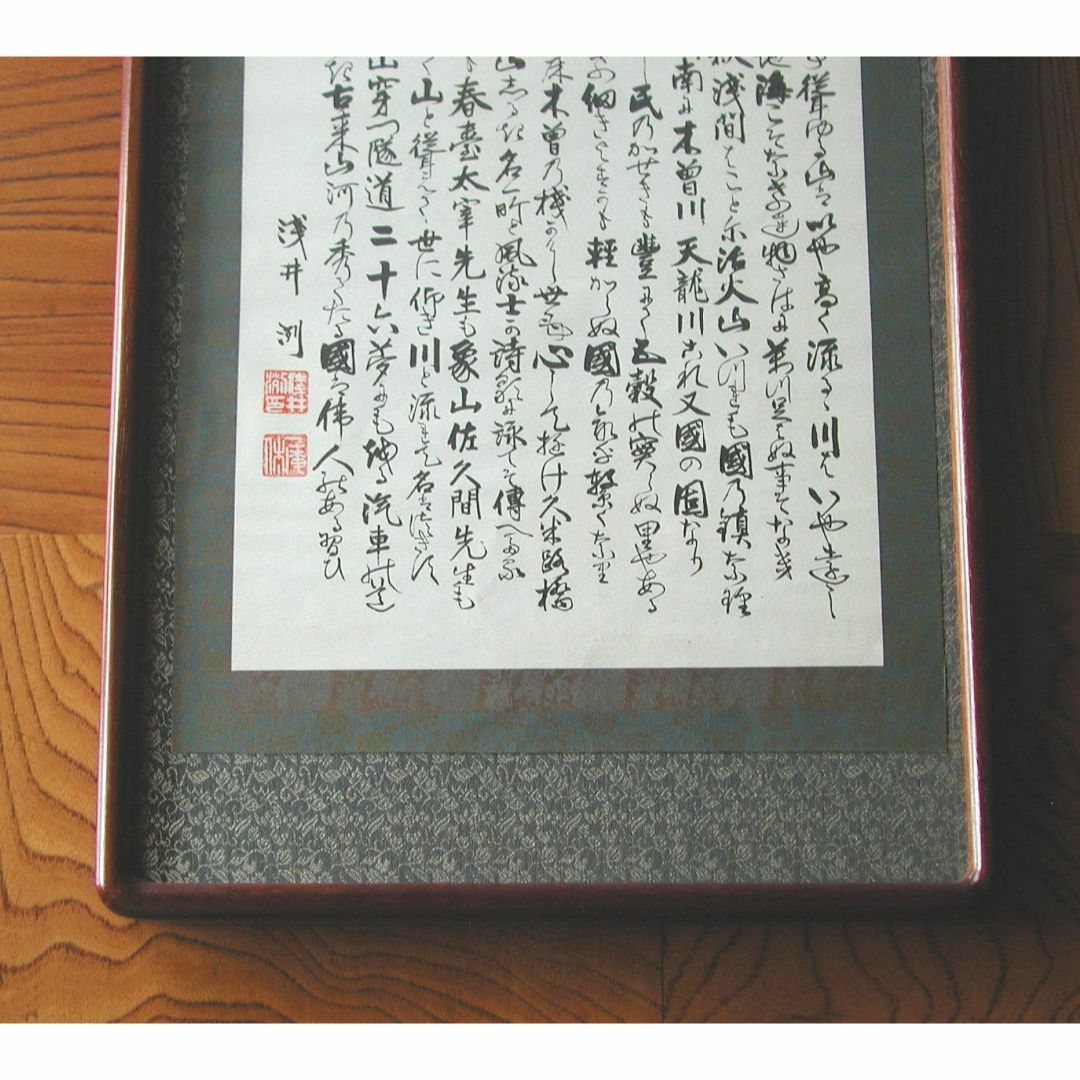 聳ゆる山はいや高く流るゝ川はいや遠し
海こそなけれ物さはに萬足らぬ事そなき
浅間はことに活火山いつれも國乃鎮なり
南に木曽川天龍川これ又國の固なり
し民乃かせきも豊にて五穀の實らぬ里やある
細きよすかも軽からぬ國乃命を繋くなり
木曽乃棧かけし世も心して行け久米路橋
しるき名所と風流士か詩歌に詠てそ傳へたる
春臺太宰先生も象山佐久間先生も
山と聳えて世に仰き川と流れて名は尽きす
山穿つ隧道二十六夢にもこゆる汽車の道
古来山河乃秀てたる國は偉人のある習ひ
浅井洌